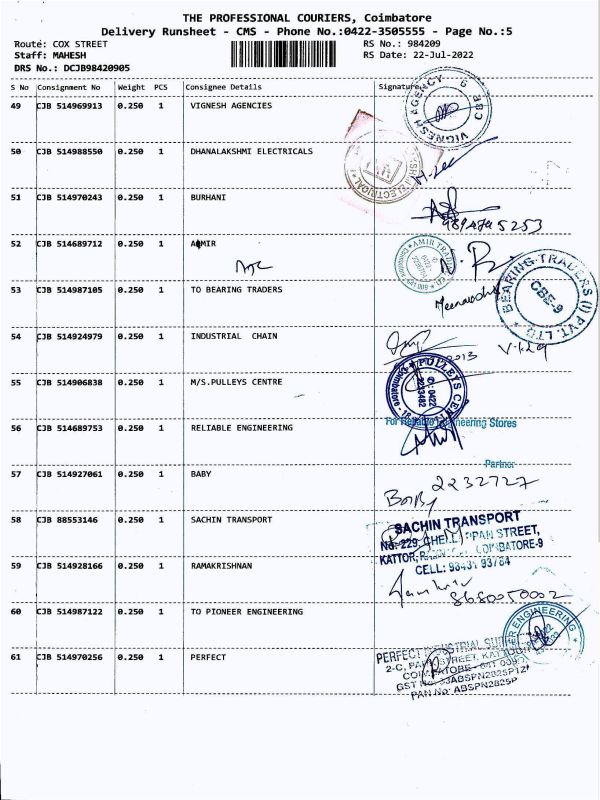 THE PROFESSIONAL COURIERS, Coimbatore
Delivery Runsheet - CMS - Phone No.:0422-3505555 - Page No.:5
Route: COX STREET RS No.: 984209
Staff: MAHESH RS Date: 22-Jul-2022
DRS No.: DCJB98420905
S No Consignment No Weight PCS Consignee Details Signature
49 CJB 514969913 0.250 1 VIGNESH AGENCIES
VIGNESH AGENCY CBE 9
50 CJB 514988550 0.250 1 DHANALAKSHMI ELECTRICALS
ELECTRICAL
51 CJB 514970243 0.250 1 BURHANI
5253
52 CJB 514689712 0.250 1 AAMIR
AMIR TRAD
53 CJB 514987105 0.250 1 TO BEARING TRADERS
BEARING TRADERS (I) PVT. LTD
CBE-9
54 CJB 514924979 0.250 1 INDUSTRIAL CHAIN
55 CJB 514906838 0.250 1 M/S.PULLEYS CENTRE
PULLEYS CEN
0422
56 CJB 514689753 0.250 1 RELIABLE ENGINEERING
For Reliable Engineering Stores
Partner
57 CJB 514927061 0.250 1 BABY
2232727
Baby
58 CJB 88553146 0.250 1 SACHIN TRANSPORT
SACHIN TRANSPORT
No. 229, STREET,
KATTOR, COIMBATORE-9
CELL: 93784
59 CJB 514928166 0.250 1 RAMAKRISHNAN
8680050002
60 CJB 514987122 0.250 1 TO PIONEER ENGINEERING
ENGINEERING
61 CJB 514970256 0.250 1 PERFECT
PERFECT INDUSTRIAL
2-C, STREET,
COIMBATORE - 641 009
GST No.
PAN No: ABSPN2825P